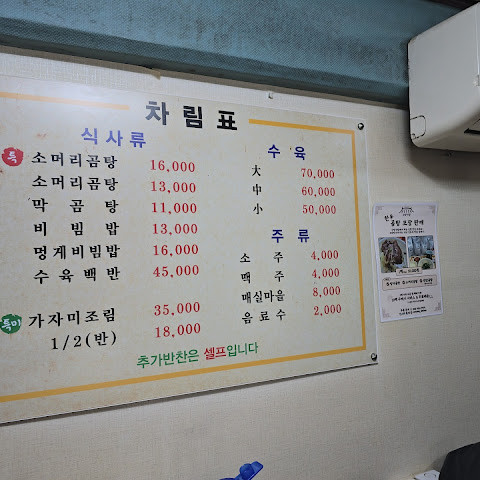 차림표
식사류
특 소머리곰탕 16,000
소머리곰탕 13,000
막 곰탕 11,000
비 빔 밥 13,000
멍게비빔밥 16,000
수육백반 45,000
특미 가자미조림 35,000
1/2(반) 18,000
수 육
大 70,000
中 60,000
小 50,000
주 류
소 주 4,000
맥 주 4,000
매실마을 8,000
음료수 2,000
추가반찬은 셀프입니다